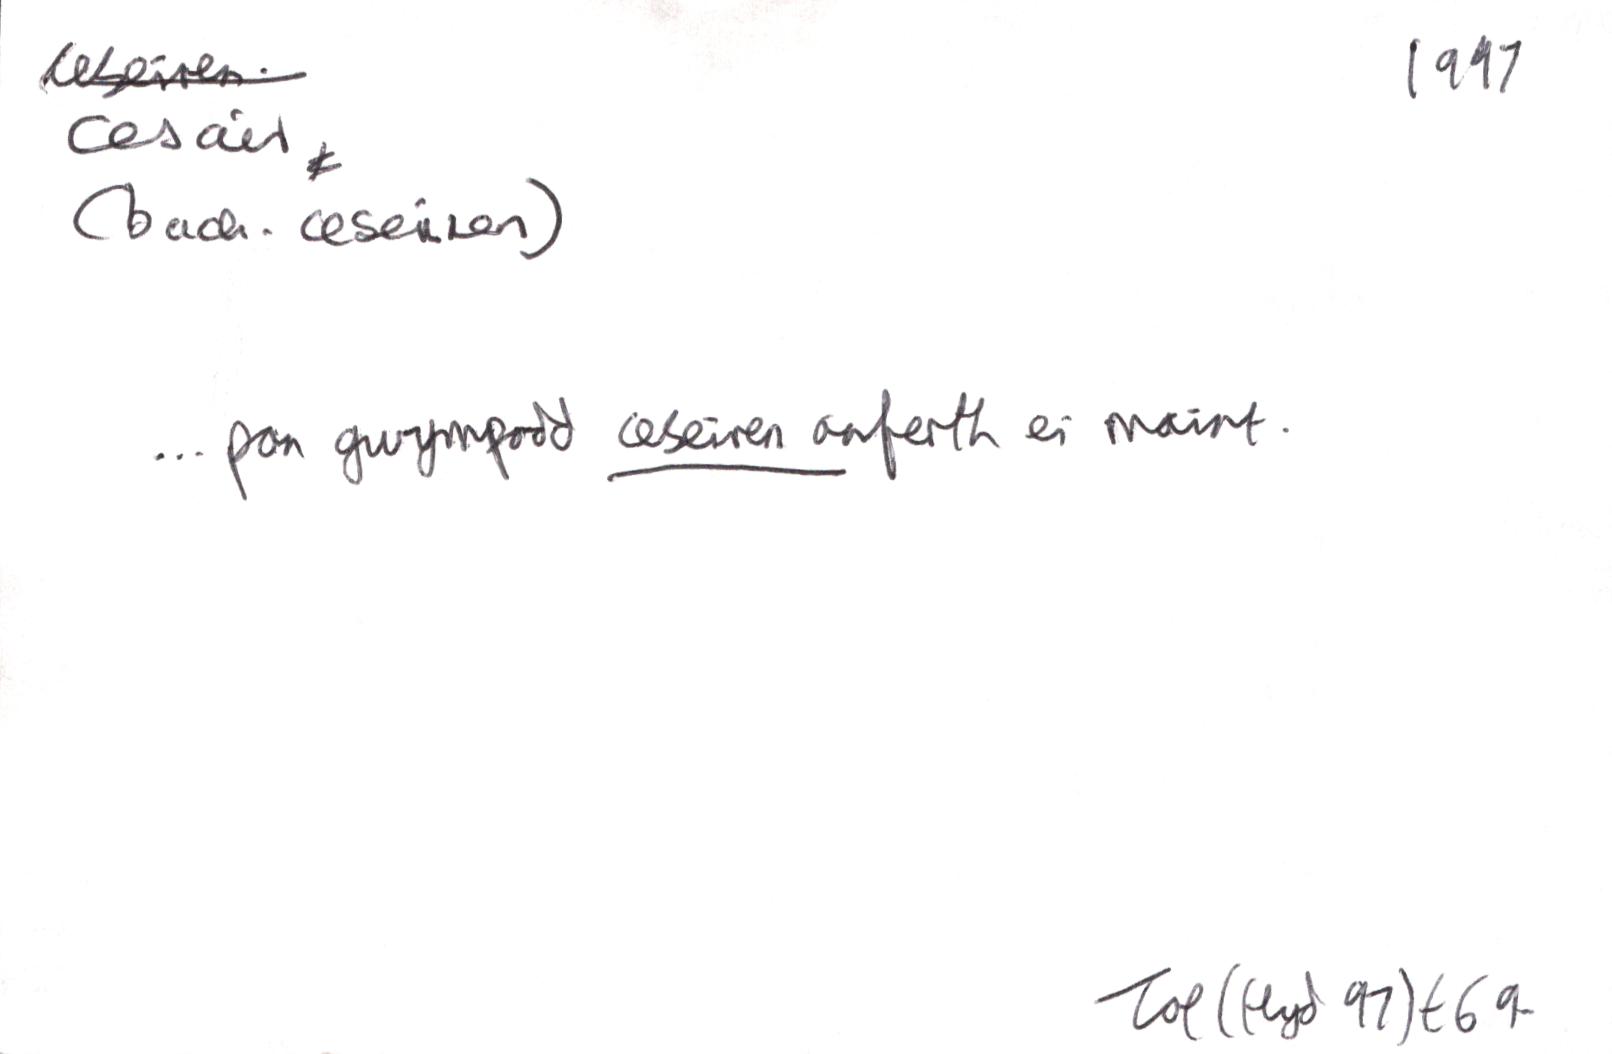 ceseiren.
1997
cesair *
(bach. ceseiren)
... pan gwympodd ceseiren anferth ei maint.
Tol (Hyd 97) t 69